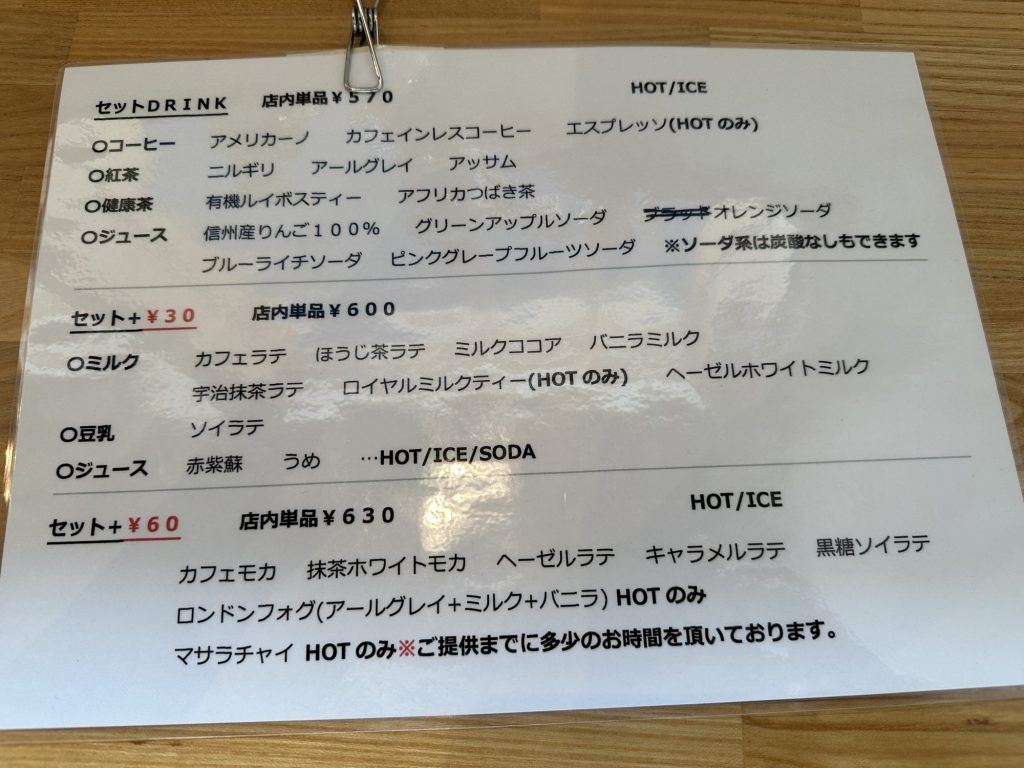 セットDRINK 店内単品¥570 HOT/ICE
○コーヒー アメリカーノ カフェインレスコーヒー エスプレッソ(HOTのみ)
○紅茶 ニルギリ アールグレイ アッサム
○健康茶 有機ルイボスティー アフリカつばき茶
○ジュース 信州産りんご100% グリーンアップルソーダ ブラッドオレンジソーダ
ブルーライチソーダ ピンクグレープフルーツソーダ ※ソーダ系は炭酸なしもできます
セット+¥30 店内単品¥600
○ミルク カフェラテ ほうじ茶ラテ ミルクココア バニラミルク
宇治抹茶ラテ ロイヤルミルクティー(HOTのみ) ヘーゼルホワイトミルク
○豆乳 ソイラテ
○ジュース 赤紫蘇 うめ …HOT/ICE/SODA
セット+¥60 店内単品¥630 HOT/ICE
カフェモカ 抹茶ホワイトモカ ヘーゼルラテ キャラメルラテ 黒糖ソイラテ
ロンドンフォグ(アールグレイ+ミルク+バニラ) HOTのみ
マサラチャイ HOTのみ※ご提供までに多少のお時間を頂いております。